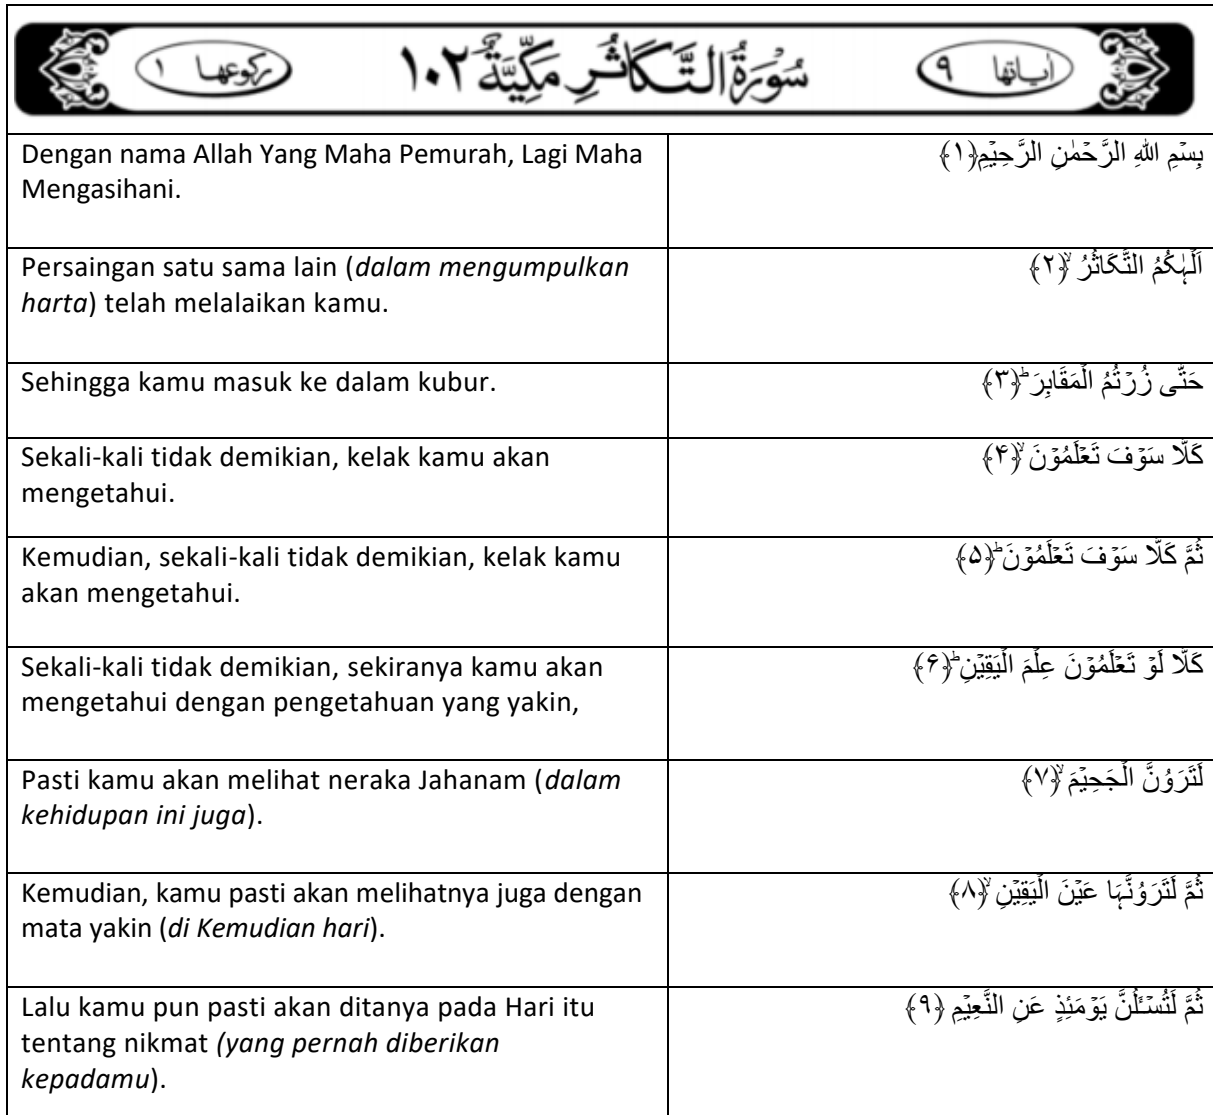 اٰیاتها ۹ سُوْرَةُ التَّكَاثُرِ مَكِّيَّةٌ ۱۰۲ رکوعها ۱
Dengan nama Allah Yang Maha Pemurah, Lagi Maha
Mengasihani.
بِسۡمِ اللّٰہِ الرَّحۡمٰنِ الرَّحِیۡمِ﴿۱﴾
Persaingan satu sama lain (dalam mengumpulkan
harta) telah melalaikan kamu.
اَلۡہٰکُمُ التَّکَاثُرُ ۙ﴿۲﴾
Sehingga kamu masuk ke dalam kubur.
حَتّٰی زُرۡتُمُ الۡمَقَابِرَ ؕ﴿۳﴾
Sekali-kali tidak demikian, kelak kamu akan
mengetahui.
کَلَّا سَوۡفَ تَعۡلَمُوۡنَ ۙ﴿۴﴾
Kemudian, sekali-kali tidak demikian, kelak kamu
akan mengetahui.
ثُمَّ کَلَّا سَوۡفَ تَعۡلَمُوۡنَ ؕ﴿۵﴾
Sekali-kali tidak demikian, sekiranya kamu akan
mengetahui dengan pengetahuan yang yakin,
کَلَّا لَوۡ تَعۡلَمُوۡنَ عِلۡمَ الۡیَقِیۡنِ ؕ﴿۶﴾
Pasti kamu akan melihat neraka Jahanam (dalam
kehidupan ini juga).
لَتَرَوُنَّ الۡجَحِیۡمَ ۙ﴿۷﴾
Kemudian, kamu pasti akan melihatnya juga dengan
mata yakin (di Kemudian hari).
ثُمَّ لَتَرَوُنَّہَا عَیۡنَ الۡیَقِیۡنِ ۙ﴿۸﴾
Lalu kamu pun pasti akan ditanya pada Hari itu
tentang nikmat (yang pernah diberikan
kepadamu).
ثُمَّ لَتُسۡـَٔلُنَّ یَوۡمَئِذٍ عَنِ النَّعِیۡمِ ﴿۹﴾